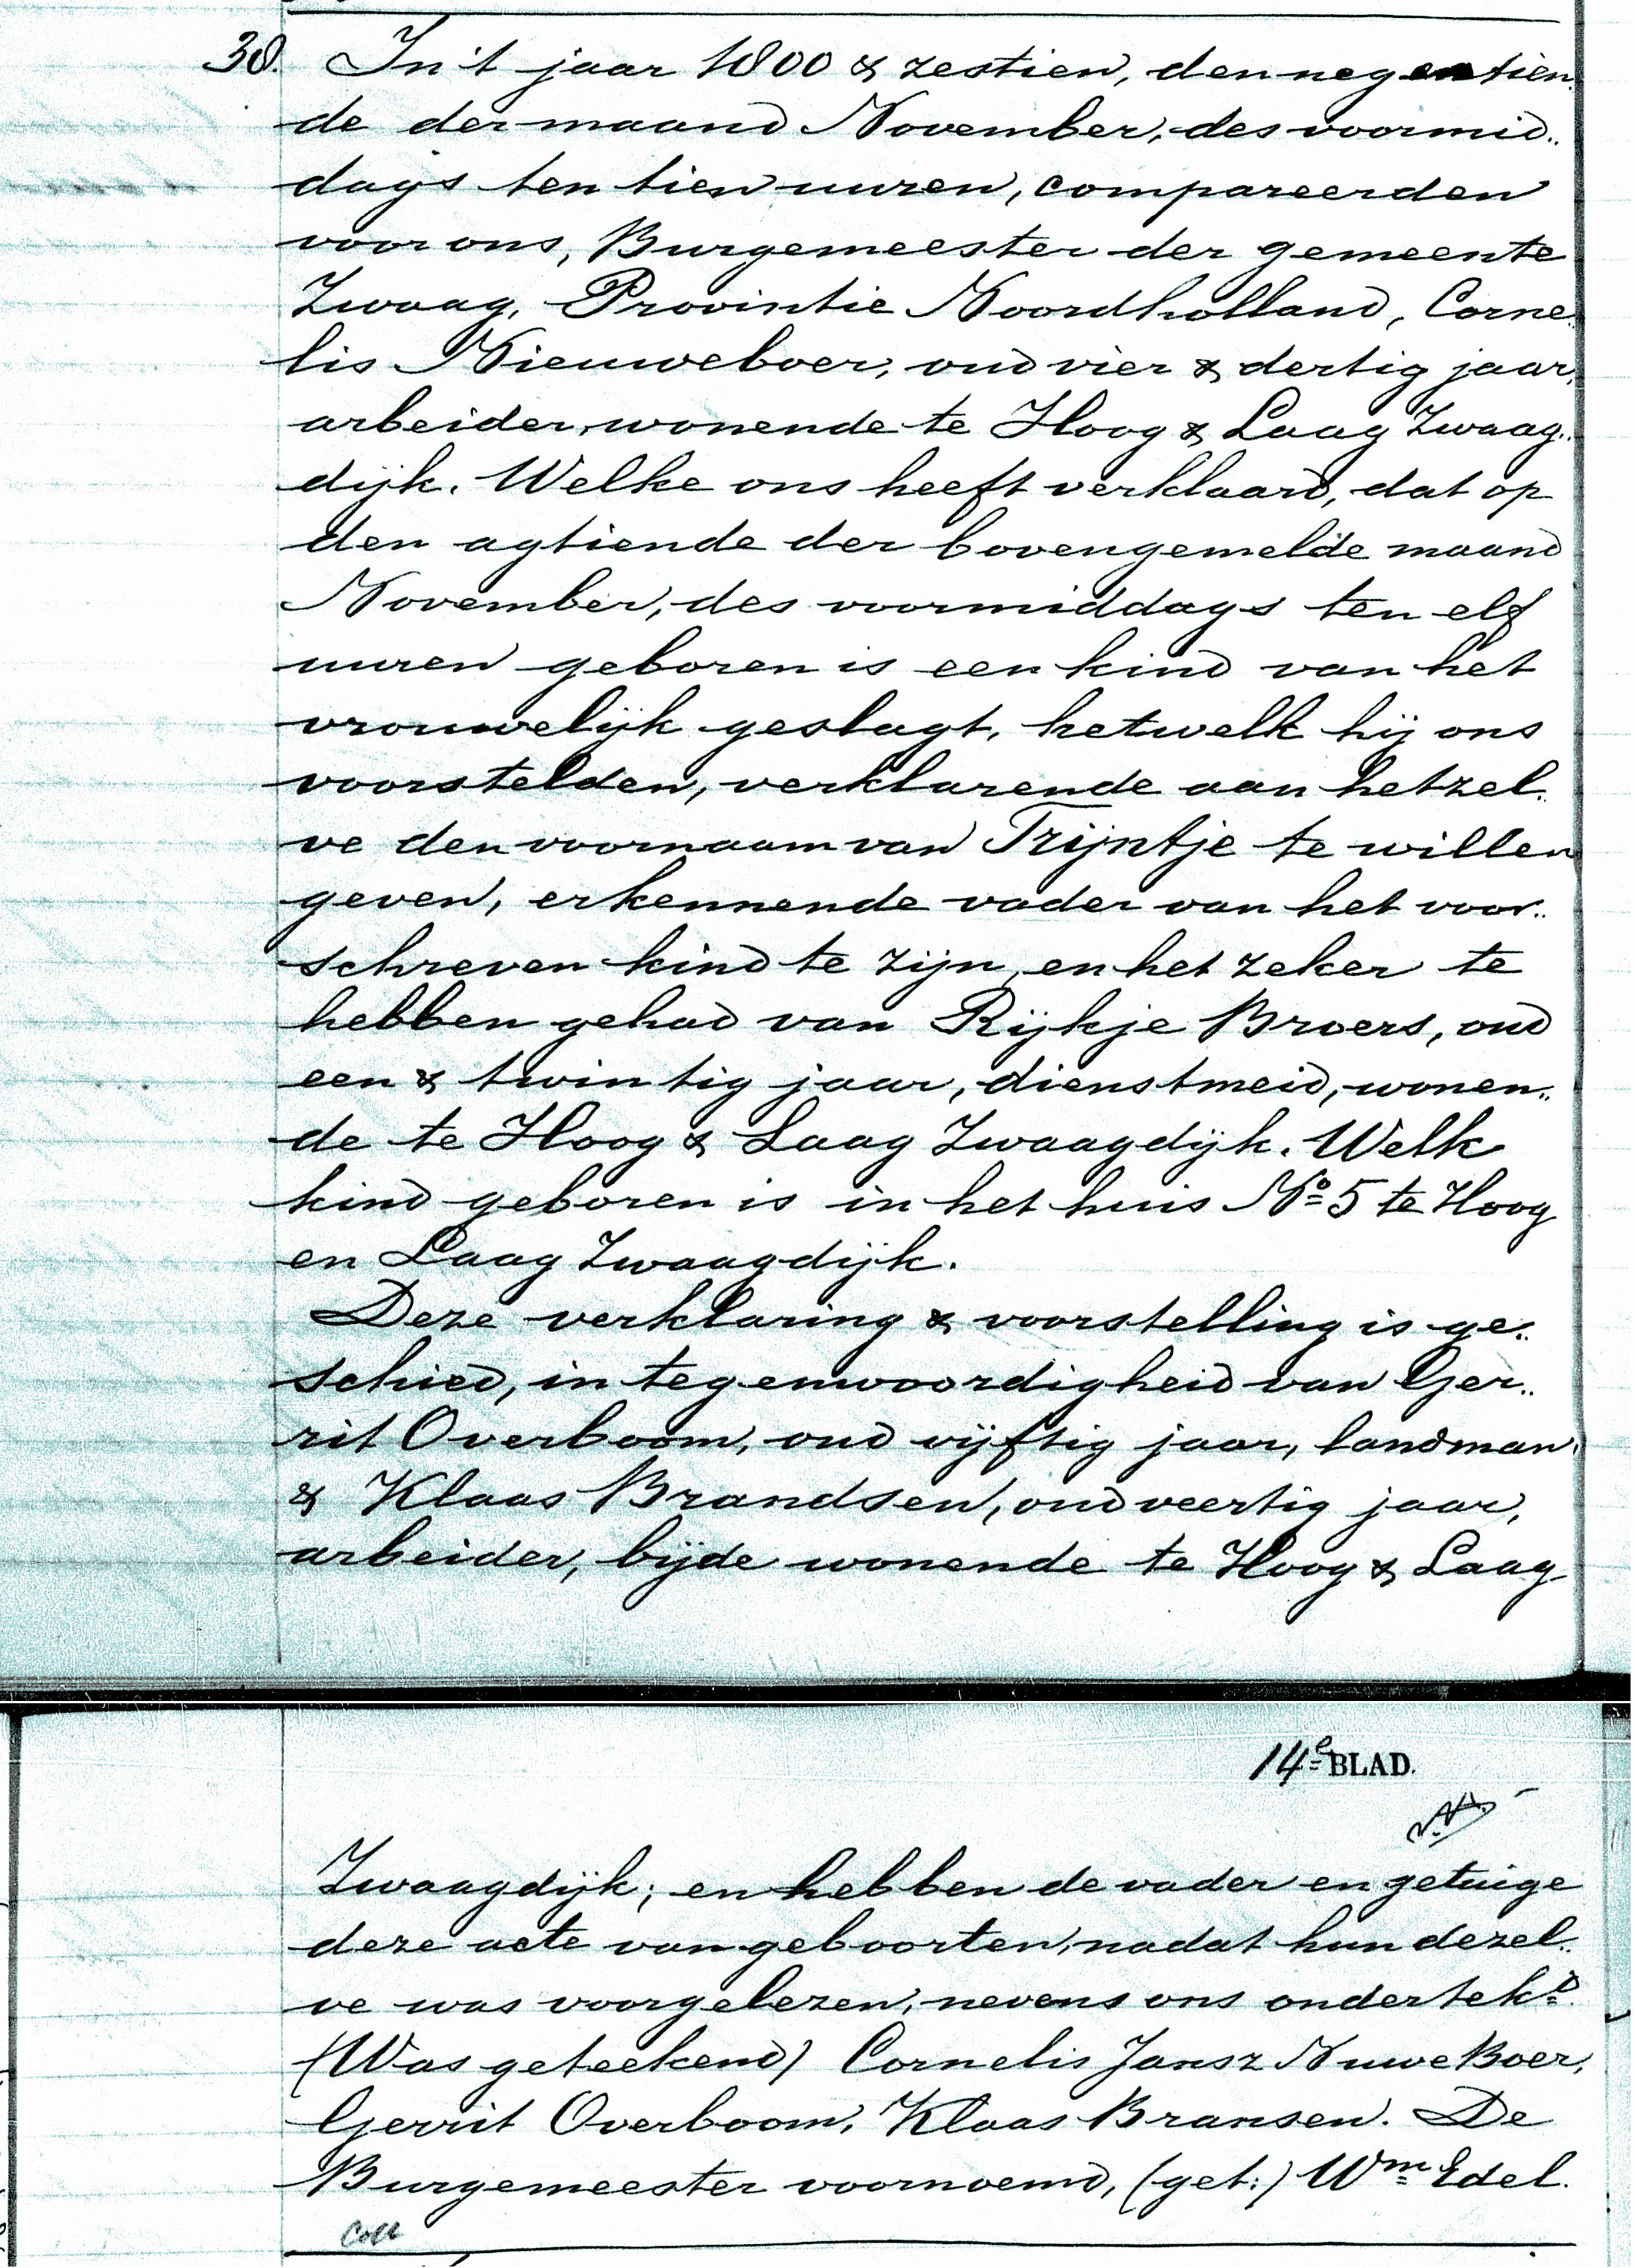 38. In 't jaar 1800 & zestien, den negentien
de der maand November, des voormid..
dags ten tien uuren, compareerden
voor ons, Burgemeester der gemeente
Zwaag, Provintie Noordholland, Corne..
lis Nieuweboer, oud vier & dertig jaar,
arbeider, wonende te Hoog & Laag Zwaag..
dijk. Welke ons heeft verklaard, dat op
den agtiende der bovengemelde maand
November, des voormiddags ten elf
uuren geboren is een kind van het
vrouwelijk geslagt, hetwelk hij ons
voorstelden, verklarende aan hetzel..
ve den voornaam van Trijntje te willen
geven, erkennende vader van het voor..
schreven kind te zijn, en het zeker te
hebben gehad van Rijkje Broers, oud
een & twintig jaar, dienstmeid, wonen..
de te Hoog & Laag Zwaagdijk. Welk
kind geboren is in het huis No 5 te Hoog
en Laag Zwaagdijk.
Deze verklaring & voorstelling is ge..
schied, in tegenwoordigheid van Ger..
rit Overboom, oud vijftig jaar, landman
& Klaas Brandsen, oud veertig jaar,
arbeider, bijde wonende te Hoog & Laag
14e BLAD.
Zwaagdijk; en hebben de vader en getuige
deze acte van geboorten, nadat hun dezel..
ve was voorgelezen, nevens ons ondertekd
(Was geteekend) Cornelis Jansz Nuwe Boer,
Gerrit Overboom, Klaas Bransen. De
Burgemeester voornoemd, (get:) Wm Edel.
Coll